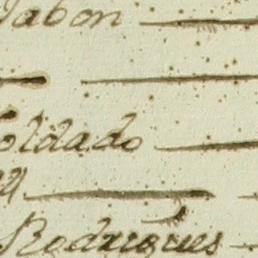 Jabon
Soldado
Rodrigues